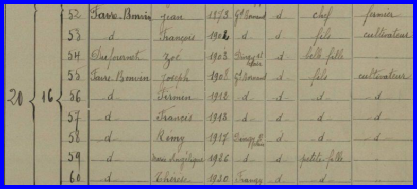 52 Favre-Bonvin Jean 1873 Gd Bornand d chef fermier
53 d François 1902 d d fils cultivateur
54 Zoé 1903 d belle-fille
55 Favre Bonvin Joseph 1908 Gd Bornand d fils cultivateur
20 16 56 d Firmin 1912 d d d d
57 d Francis 1913 d d d d
58 d Rémy 1917 d d d
59 d Angélique 1926 d d petite fille
60 d Thérèse 1930 Frangy d d